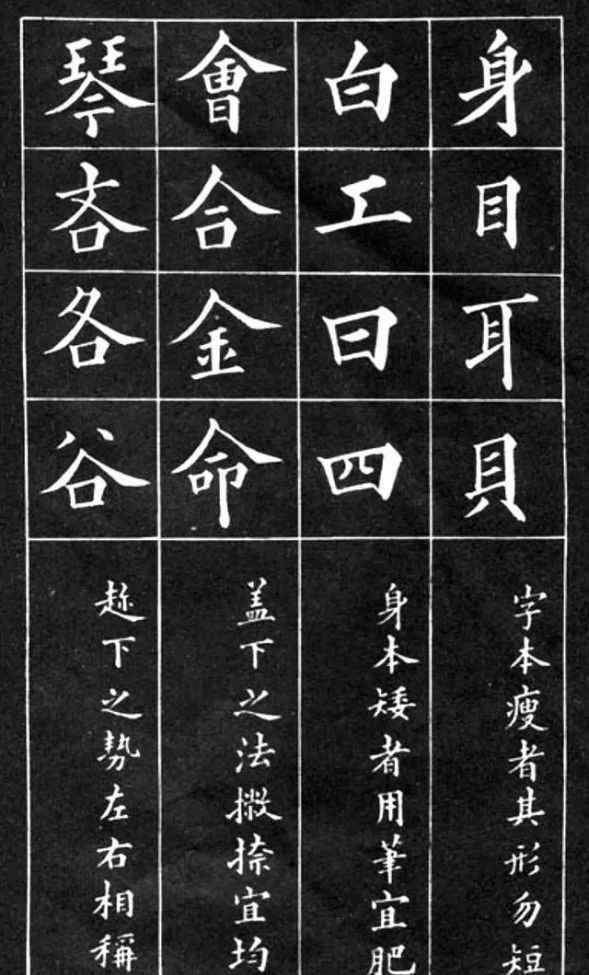 身目耳貝
字本瘦者其形勿短
白工曰四
身本矮者用筆宜肥
會合金命
蓋下之法撇捺宜均
琴吝各谷
趂下之勢左右相稱